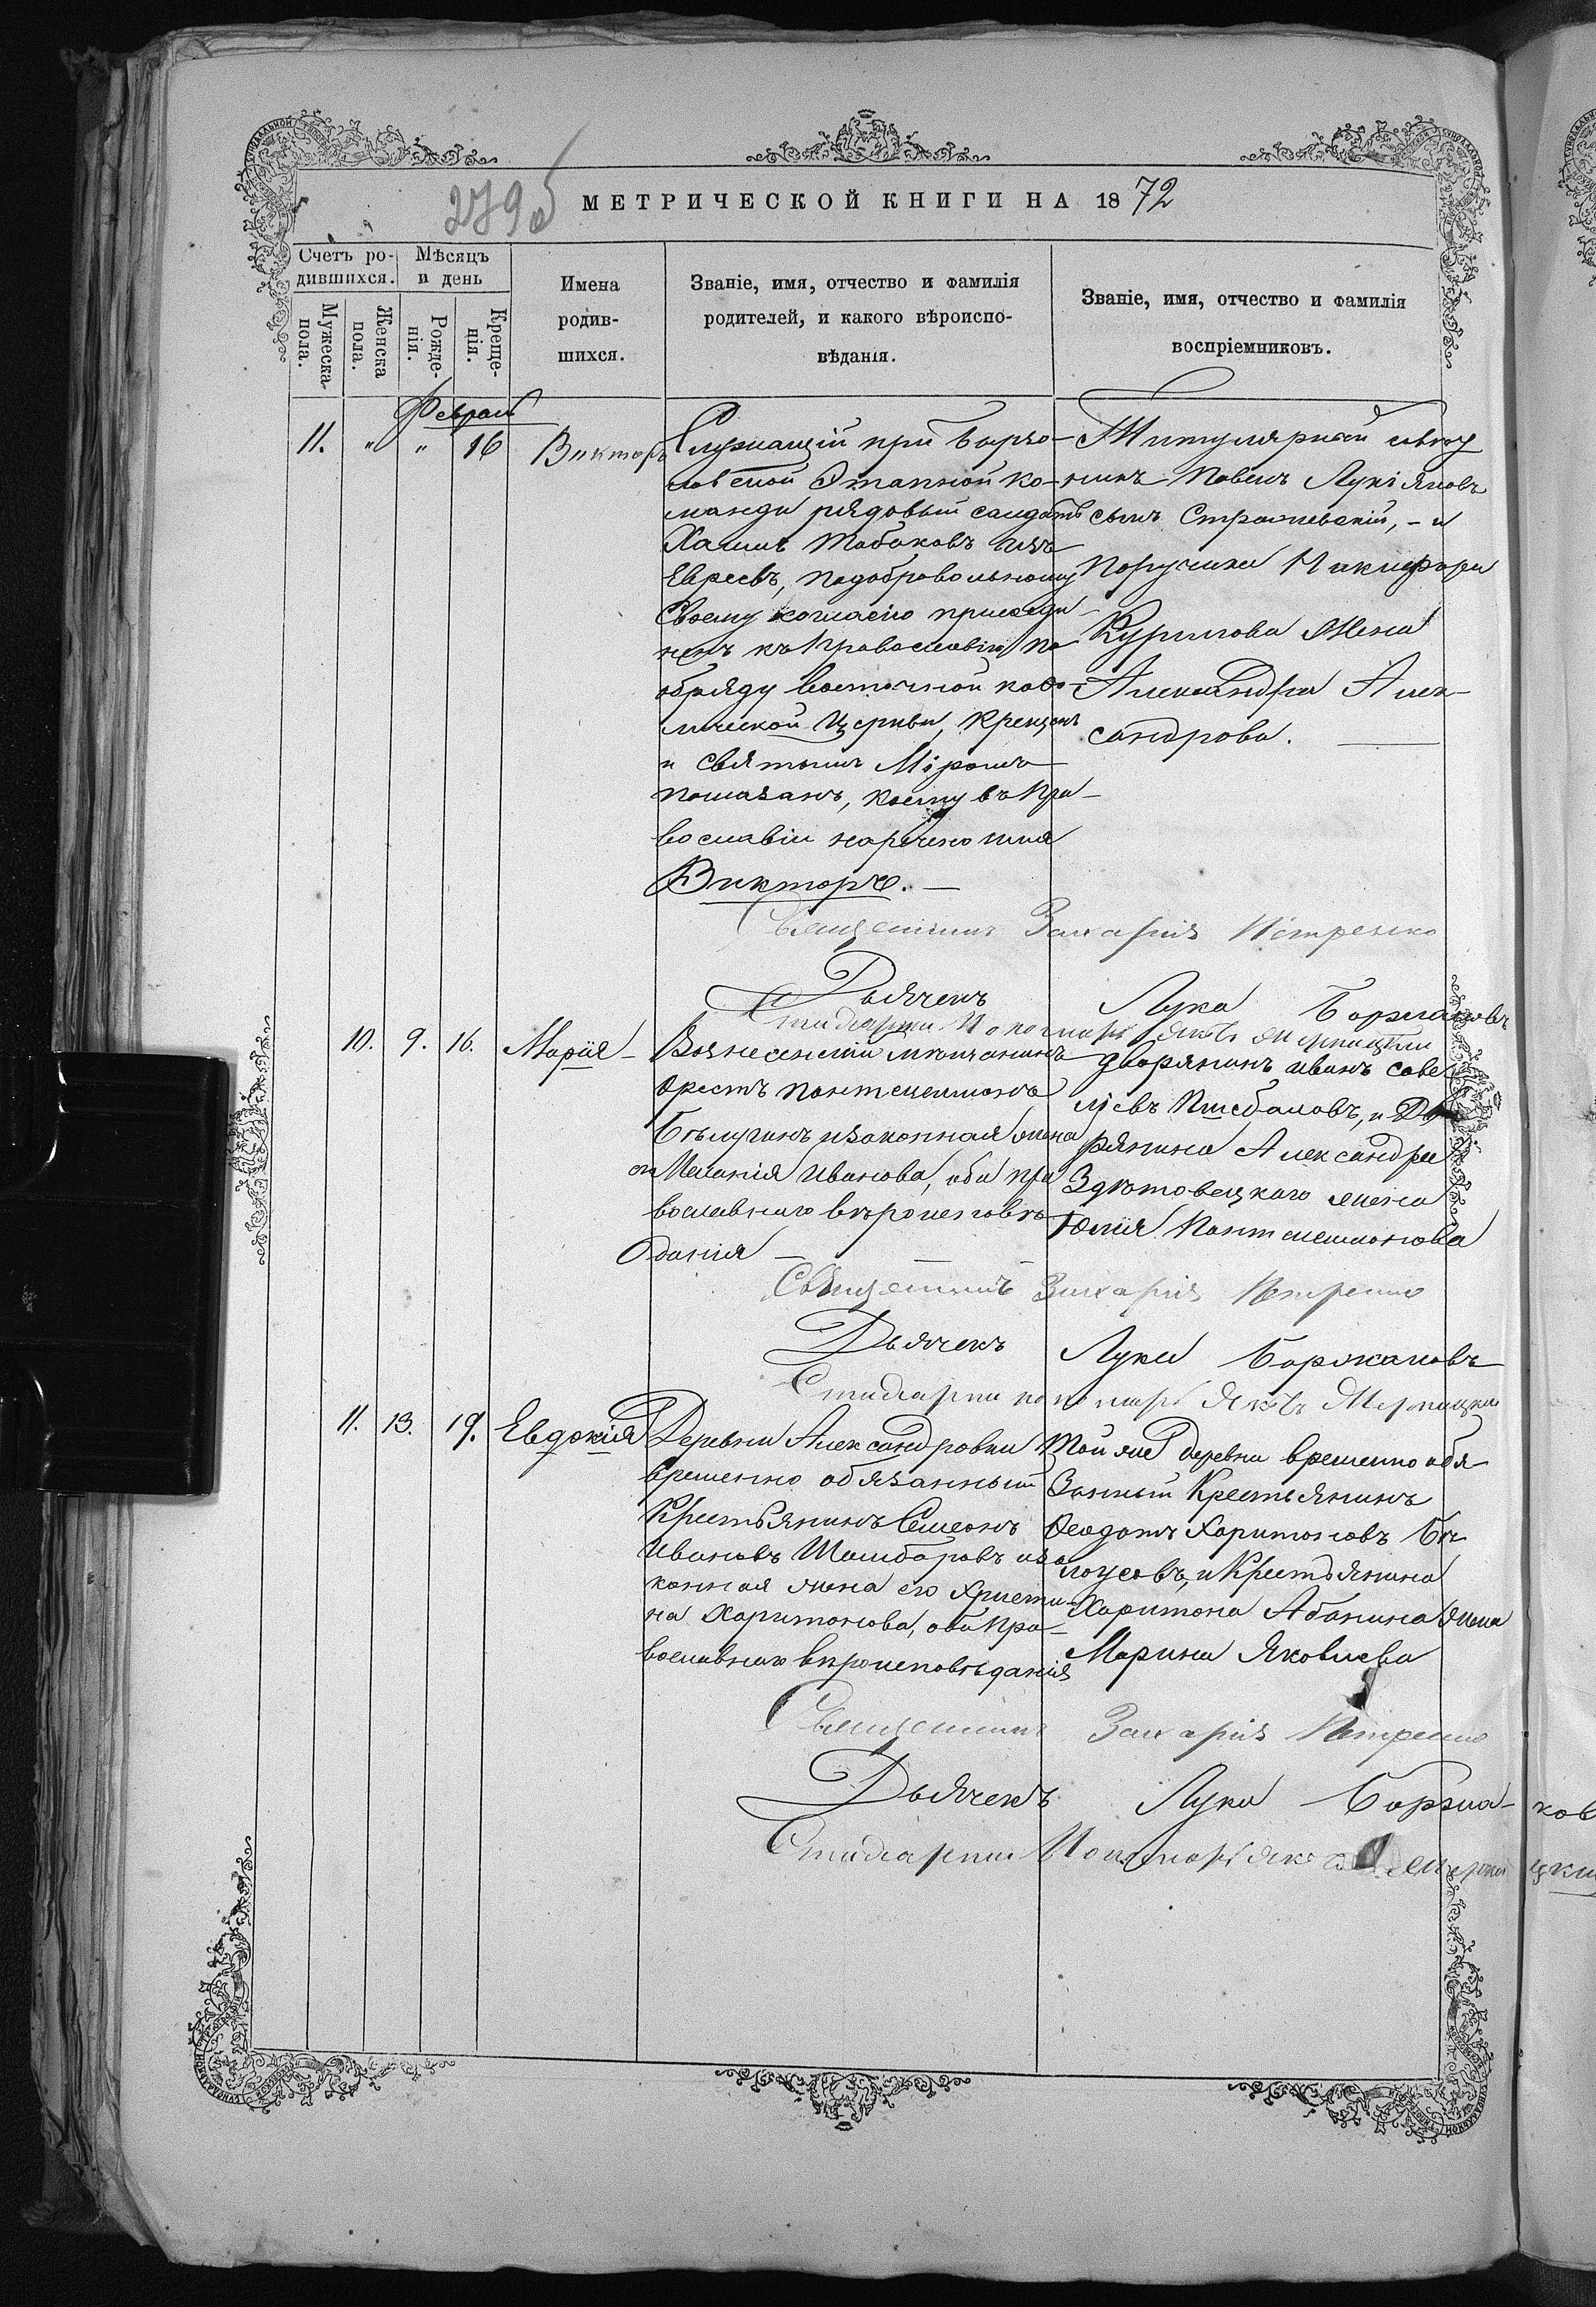 279 об
МЕТРИЧЕСКОЙ КНИГИ НА 1872
Счетъ родившихся.
Мѣсяцъ и день
Мужеска пола.
Женска пола.
Рожденія.
Крещенія.
Имена родившихся.
Званіе, имя, отчество и фамилія родителей, и какого вѣроисповѣданія.
Званіе, имя, отчество и фамилія воспріемниковъ.
Февраль
11. " " 16 Викторъ
Служащій при
Этапной ко-
манди рядовый солдатъ
Хаимъ Табаковъ изъ
Евреевъ, подобровольному
своему согласію присоеди-
ненъ къ Православію по
обряду восточной каѳо-
лической Церкви, крещенъ
и святымъ Мѵромъ
помазанъ, коему въ Пра-
вославіи наречено имя
Викторъ. —
Титулярный совѣт
никъ Павелъ Лукіяновъ
сынъ - и
Поручика Никифора
Курилова жена
Александра Алек-
сандрова.
Священникъ Захарія Петренко
Дьячекъ Лука Боржаковъ
Стихарный Пономарь Яковъ
10. 9. 16. Марія
Вознесенскій мѣщанинъ
Орестъ Пантелеимоновъ
Бѣлугинъ изаконная жена
его Меланія Иванова, оба пра
вославнаго вѣроисповѣ
данія —
Дворянинъ Иванъ Саве
лѣевъ и Дво
рянина Александра
жена
Юлія Пантелеимонова
Священникъ Захарія Петренко
Дьячекъ Лука Боржаковъ
Стихарный пономарь Яковъ
11. 13. 19. Евдокія
Деревни Александровки
временно обязанный
Крестьянинъ Семеонъ
Ивановъ Шамбаровъ иза
конная жена его Христи-
на Харитонова, оба Пра-
вославнаго вѣроисповѣданія
Той же деревни временно обя-
занный Крестьянинъ
Ѳеодотъ Харитоновъ Бѣ
лоусовъ, и Крестьянина
Харитона Абанина жена
Марина Яковлева
Священникъ Захарія Петренко
Дьячекъ Лука Боржаков
Стихарный Пономарь